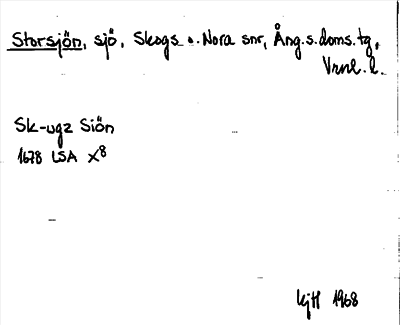 Storsjön, sjö, Skogs o. Nora snr, Ång.s.doms.tg,
Vrnl.l.
Sk-ugz Siön
1678 LSA X8
KjH 1968